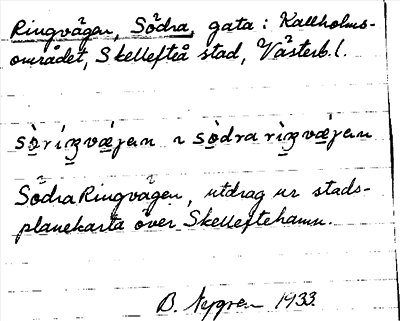 Ringvägen, Södra, gata i Kallholms-
området, Skellefteå stad, Västerb. l.
Södra Ringvägen, utdrag ur stads-
planekarta över Skelleftehamn.
B. Nygren 1933.